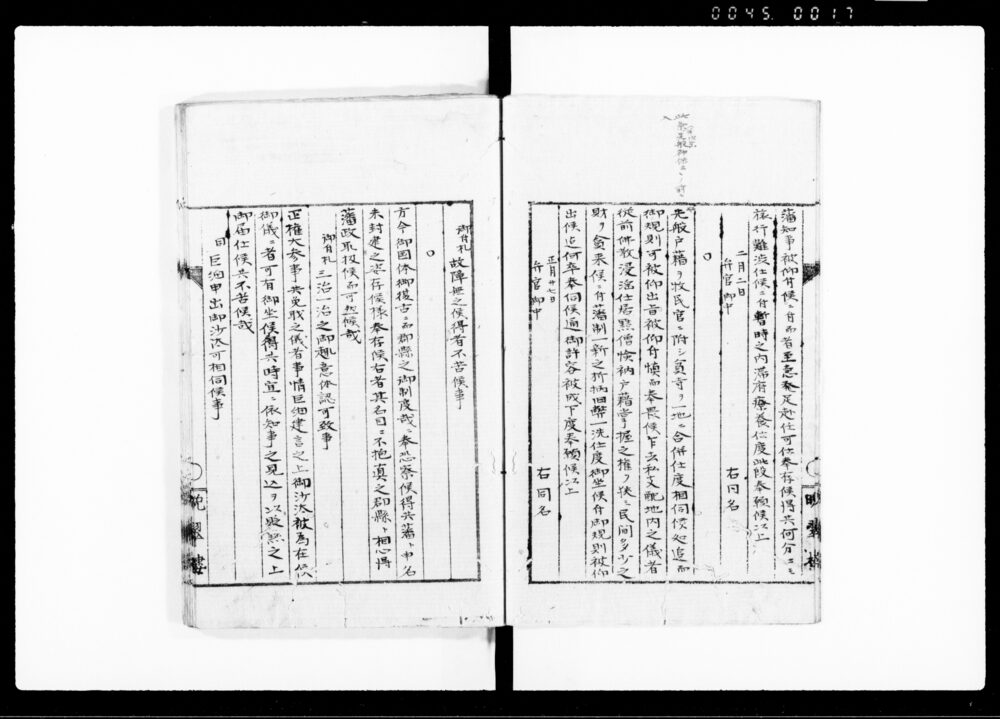 0045. 0017
藩知事被仰付候ニ付而者至急発足赴任可仕奉存候得共何分ニモ
旅行難渋仕候ニ付暫時之内滞府療養仕度此段奉願候以上
二月二日 右同名
弁官御中
○
先般戸籍ヲ牧民官ニ附シ負寺ヲ一地ニ合併仕度相伺候処追而
御規則可被仰出旨被仰付慎而奉畏候乍去私支配地内之儀者
従前仏教浸淫仕居黠僧悛衲戸籍掌握之権ヲ挟ミ民間多少之
財ヲ貪来候ニ付藩制一新之折柄旧弊一洗仕度御坐候付御規則被仰
出候迄何卒奉伺候通御許容被成下度奉願候以上
正月廿七日 右同名
弁官御中
御付札 故障無之候得者不苦候事
○
方今御国体御復古ニ而郡県之御制度哉ニ奉恐察候得共藩ト申名
未封建之姿存候様奉存候右者其名目ニ不抱真之郡県ト相心得
藩政取扱候而可然候哉
御付札 三治一治之御趣意体認可致事
正権大参事共免職之儀者事情巨細建言之上御沙汰被為在候
御儀ニ者可有御坐候得共時宜ニ依知事之見込ヲ以黜之上
御届仕候共不苦候哉
同 巨細申出御沙汰可相伺候事
晩翠楼
晩翠楼